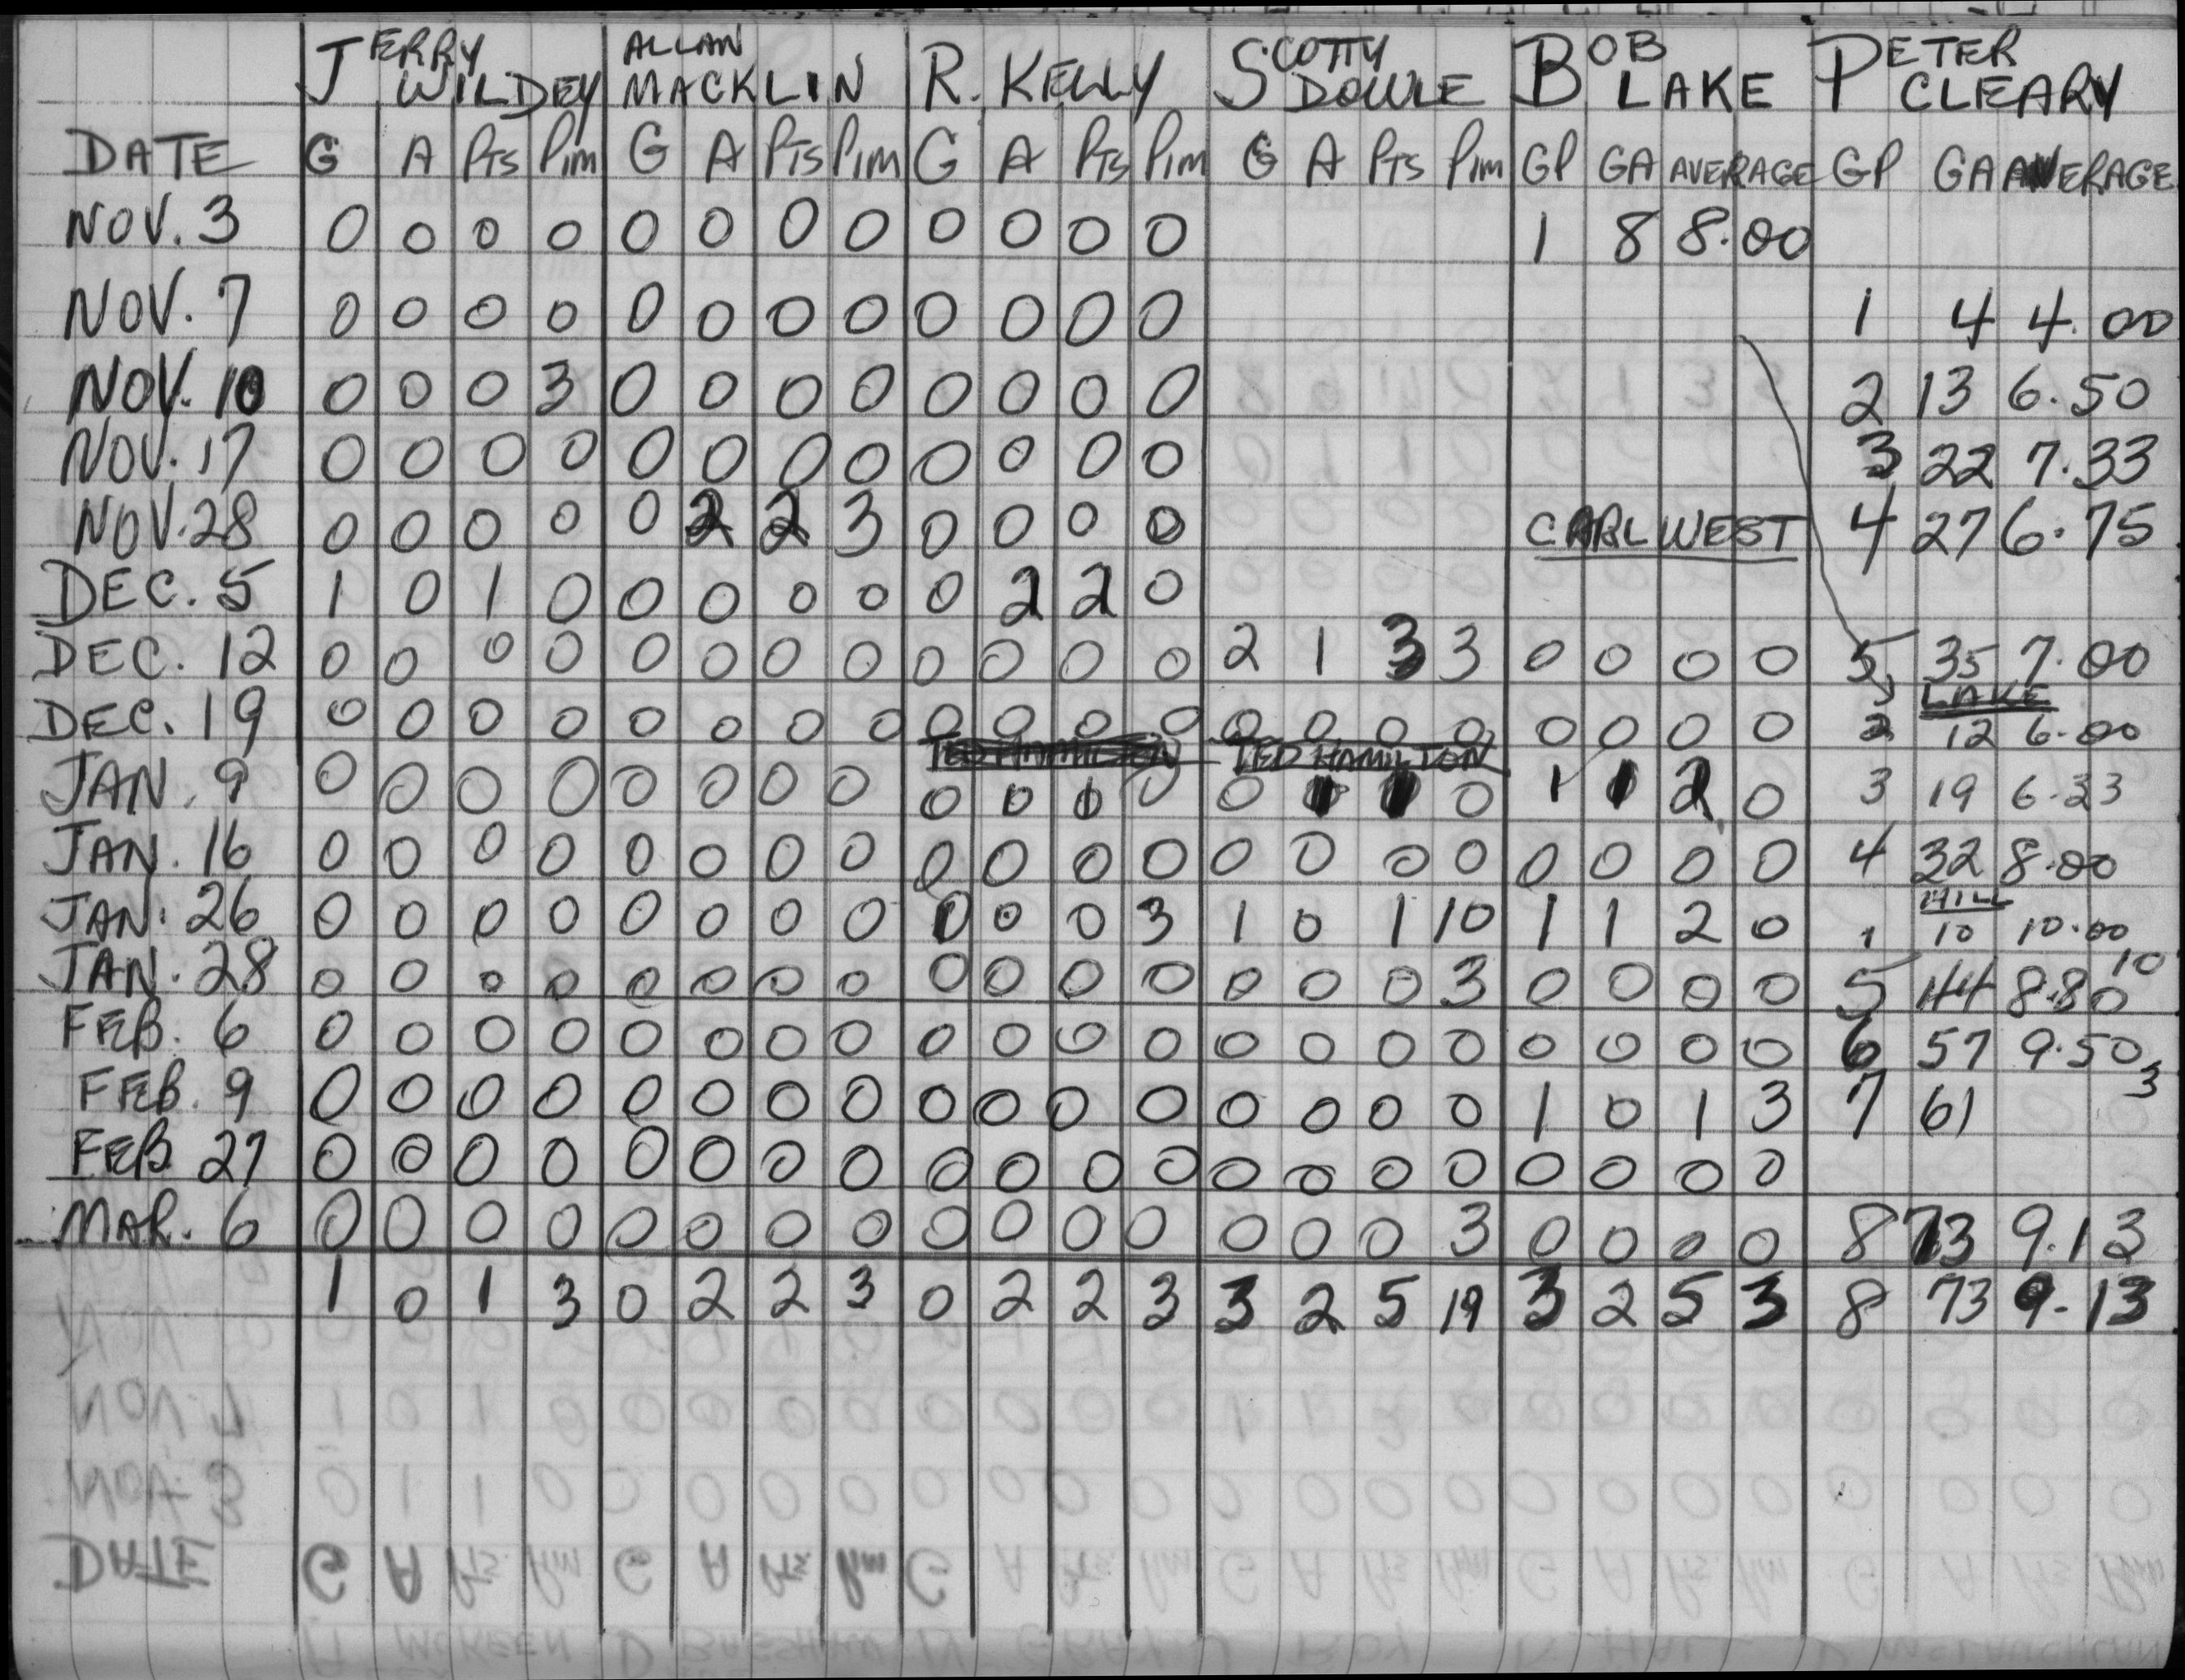 JERRY WILDEY ALLAN MACKLIN R. KELLY SCOTTY DOWLE BOB LAKE PETER CLEARY
DATE G A PTS PIM G A PTS PIM G A PTS PIM G A PTS PIM GP GA AVERAGE GP GA AVERAGE
NOV. 3 0 0 0 0 0 0 0 0 0 0 0 0 1 8 8.00
NOV. 7 0 0 0 0 0 0 0 0 0 0 0 0 1 4 4.00
NOV. 10 0 0 0 3 0 0 0 0 0 0 0 0 2 13 6.50
NOV. 17 0 0 0 0 0 0 0 0 0 0 0 0 3 22 7.33
NOV. 28 0 0 0 0 0 2 2 3 0 0 0 0 CARL WEST 4 27 6.75
DEC. 5 1 0 1 0 0 0 0 0 0 2 2 0
DEC. 12 0 0 0 0 0 0 0 0 0 0 0 0 2 1 3 3 0 0 0 0 5 35 7.00
LAKE
DEC. 19 0 0 0 0 0 0 0 0 0 0 0 0 0 0 0 0 0 0 0 0 2 12 6.00
TED HAMILTON TED HAMILTON
JAN. 9 0 0 0 0 0 0 0 0 0 0 0 0 1 1 0 1 1 2 0 3 19 6.33
JAN. 16 0 0 0 0 0 0 0 0 0 0 0 0 0 0 0 0 0 0 0 0 4 32 8.00
HILL
JAN. 26 0 0 0 0 0 0 0 0 0 0 3 1 0 1 10 1 1 2 0 1 10 10.00
JAN. 28 0 0 0 0 0 0 0 0 0 0 0 0 0 0 0 3 0 0 0 0 5 44 8.80 10
FEB. 6 0 0 0 0 0 0 0 0 0 0 0 0 0 0 0 0 0 0 0 0 6 57 9.50
FEB. 9 0 0 0 0 0 0 0 0 0 0 0 0 0 0 0 0 1 0 1 3 7 61 3
FEB. 27 0 0 0 0 0 0 0 0 0 0 0 0 0 0 0 0 0 0 0 0
MAR. 6 0 0 0 0 0 0 0 0 0 0 0 0 0 0 0 3 0 0 0 0 8 73 9.13
1 0 1 3 0 2 2 3 0 2 2 3 3 2 5 19 3 2 5 3 8 73 9.13